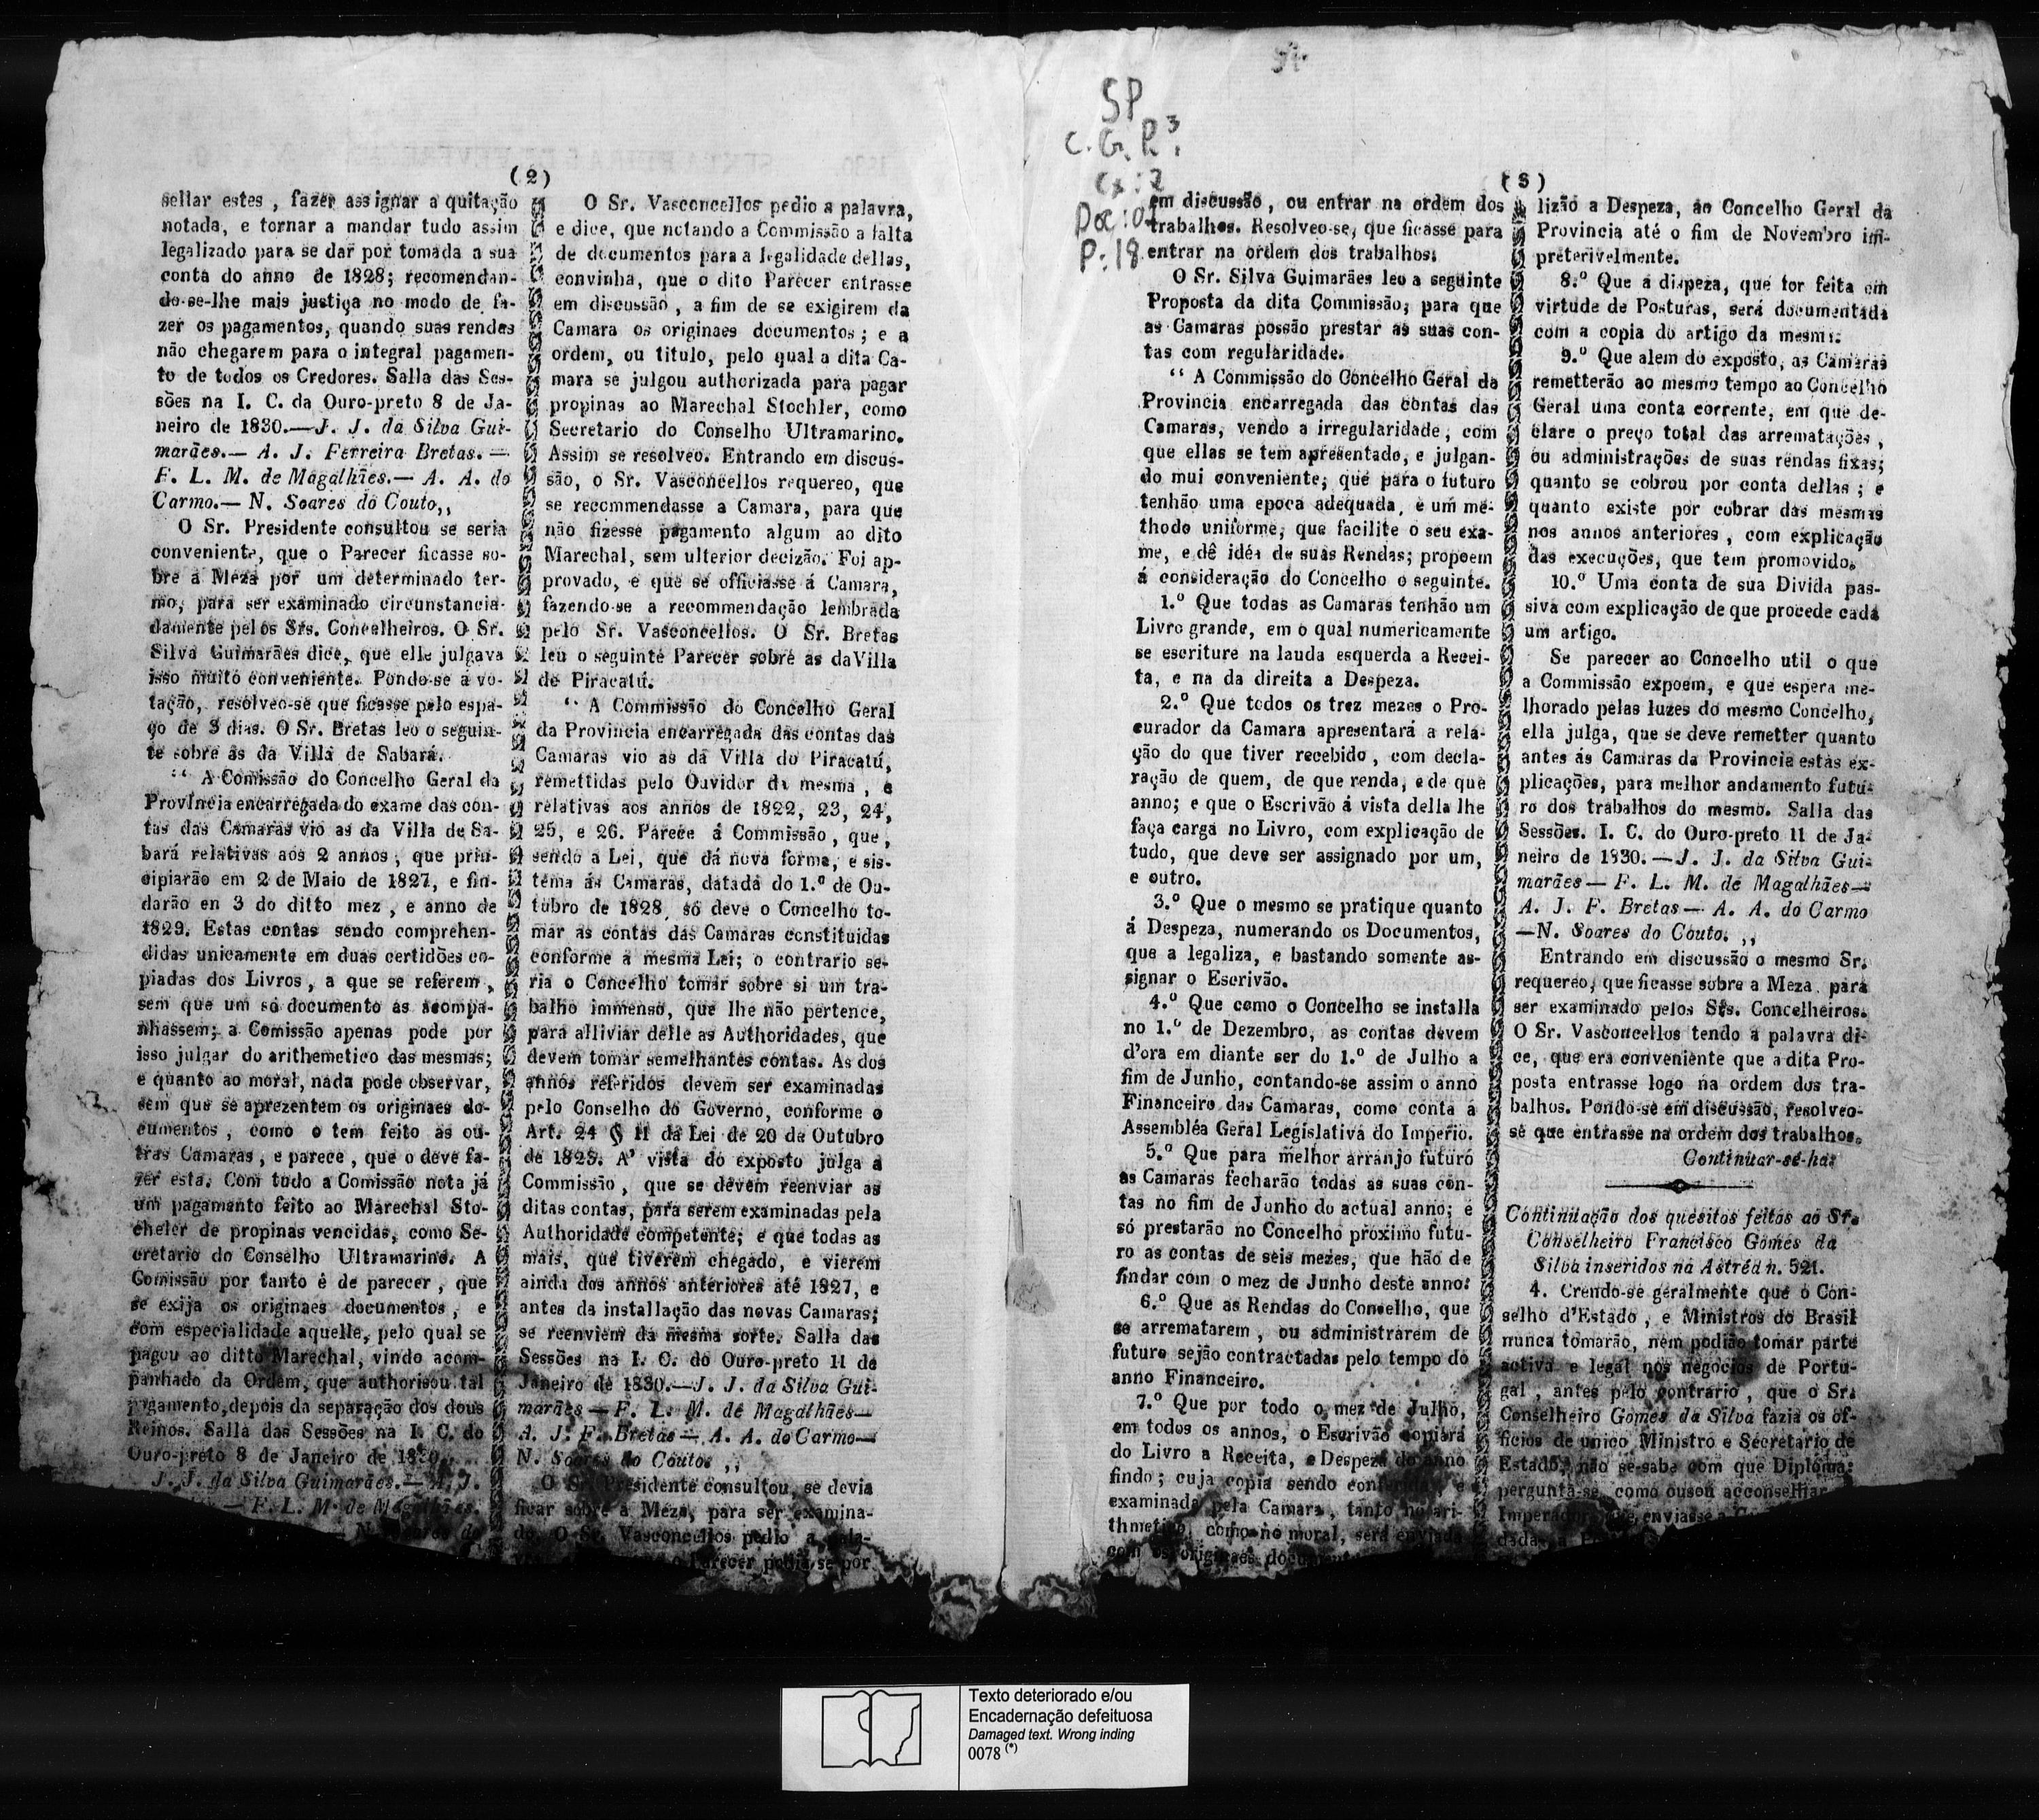 ( 2 )
sellar estes , fazer assignar a quitação
notada, e tornar a mandar tudo assim
legalizado para se dar por tomada a sua
conta do anno de 1828; recomendan-
do-se-lhe mais justiça no modo de fa-
zer os pagamentos, quando suas rendas
não chegarem para o integral pagamen-
to de todos os Credores. Salla das Ses-
sões na I. C. da Ouro-preto 8 de Ja-
neiro de 1830.—J. J. da Silva Gui-
marães.— A. J. Ferreira Bretas. —
F. L. M. de Magalhães.— A. A. do
Carmo.— N. Soares do Couto,,
O Sr. Presidente consultou se seria
conveniente, que o Parecer ficasse so-
bre a Meza por um determinado ter-
mo, para ser examinado circunstancia-
damente pelos Srs. Concelheiros. O Sr.
Silva Guimarães dice, que elle julgava
isso muito conveniente. Pondo-se á vo-
tação, resolveo-se que ficasse pelo espa-
ço de 3 dias. O Sr. Bretas leo o seguin-
te sobre as da Villa de Sabará.
“ A Comissão do Concelho Geral da
Provincia encarregada do exame das con-
tas das Camaras vio as da Villa de Sa-
bará relativas aos 2 annos , que prin-
cipiarão em 2 de Maio de 1827, e fin-
darão en 3 do ditto mez , e anno de
1829. Estas contas sendo comprehen-
didas unicamente em duas certidões co-
piadas dos Livros , a que se referem,
sem que um só documento as acompa-
nhassem; a Comissão apenas pode por
isso julgar do arithemetico das mesmas;
e quanto ao moral, nada pode observar,
sem que se aprezentem os originaes do-
cumentos , como o tem feito as ou-
tras Camaras , e parece , que o deve fa-
zer esta. Com tudo a Comissão nota já
um pagamento feito ao Marechal Sto-
cheler de propinas vencidas, como Se-
cretario do Conselho Ultramarino. A
Comissão por tanto é de parecer , que
se exija os originaes documentos , e
com especialidade aquelle, pelo qual se
pagou ao ditto Marechal, vindo acom-
panhado da Ordem, que authorisou tal
pagamento, depois da separação dos dous
Reinos. Salla das Sessões na I. C. do
Ouro-preto 8 de Janeiro de 1830.
J. J. da Silva Guimarães.— A. J.
— F. L. M. de Magalhães.
N. Soares do
O Sr. Vasconcellos pedio a palavra,
e dice, que notando a Commissão a falta
de documentos para a legalidade dellas,
convinha, que o dito Parecer entrasse
em discussão , a fim de se exigirem da
Camara os originaes documentos ; e a
ordem, ou titulo, pelo qual a dita Ca-
mara se julgou authorizada para pagar
propinas ao Marechal Stochler, como
Secretario do Conselho Ultramarino.
Assim se resolveo. Entrando em discus-
são, o Sr. Vasconcellos requereo, que
se recommendasse a Camara, para que
não fizesse pagamento algum ao dito
Marechal, sem ulterior decizão. Foi ap-
provado, e que se officiasse á Camara,
fazendo-se a recommendação lembrada
pelo Sr. Vasconcellos. O Sr. Bretas
leu o seguinte Parecer sobre as da Villa
de Piracatú.
“ A Commissão do Concelho Geral
da Provincia encarregada das contas das
Camaras vio as da Villa do Piracatú,
remettidas pelo Ouvidor da mesma , e
relativas aos annos de 1822, 23, 24,
25, e 26. Parece á Commissão, que,
sendo a Lei, que dá nova forma, e sis-
tema ás Camaras, datada do 1.º de Ou-
tubro de 1828, só deve o Concelho to-
mar as contas das Camaras constituidas
conforme a mesma Lei; o contrario se-
ria o Concelho tomar sobre si um tra-
balho immenso, que lhe não pertence,
para alliviar delle as Authoridades, que
devem tomar semelhantes contas. As dos
annos referidos devem ser examinadas
pelo Conselho do Governo, conforme o
Art. 24 § 11 da Lei de 20 de Outubro
de 1823. A' vista do exposto julga a
Commissão , que se devem reenviar as
ditas contas, para serem examinadas pela
Authoridade competente; e que todas as
mais, que tiverem chegado, e vierem
ainda dos annos anteriores até 1827, e
antes da installação das novas Camaras;
se reenviem da mesma sorte. Salla das
Sessões na I. C. do Ouro-preto 11 de
Janeiro de 1830.—J. J. da Silva Gui-
marães — F. L. M. de Magalhães—
A. J. F. Bretas — A. A. do Carmo—
N. Soares do Couto. ,,
O Sr. Presidente consultou, se devia
ficar sobre a Meza, para ser examina-
do. O Sr. Vasconcellos pedio a pala-
Parecer pedia se por
SP
C. G. P. 3
Cx: 2
Doc: 01
P: 18
( 3 )
em discussão , ou entrar na ordem dos
trabalhos. Resolveo-se, que ficasse para
entrar na ordem dos trabalhos.
O Sr. Silva Guimarães leo a seguinte
Proposta da dita Commissão; para que
as Camaras possão prestar as suas con-
tas com regularidade.
“ A Commissão do Concelho Geral da
Provincia encarregada das contas das
Camaras, vendo a irregularidade , com
que ellas se tem apresentado, e julgan-
do mui conveniente; que para o futuro
tenhão uma epoca adequada, e um me-
thodo uniforme, que facilite o seu exa-
me, e dê idéa de suas Rendas; propoem
á consideração do Concelho o seguinte.
1.º Que todas as Camaras tenhão um
Livro grande, em o qual numericamente
se escriture na lauda esquerda a Recei-
ta, e na da direita a Despeza.
2.º Que todos os trez mezes o Pro-
curador da Camara apresentará a rela-
ção do que tiver recebido , com decla-
ração de quem, de que renda, e de que
anno; e que o Escrivão á vista della lhe
faça carga no Livro, com explicação de
tudo, que deve ser assignado por um,
e outro.
3.º Que o mesmo se pratique quanto
á Despeza, numerando os Documentos,
que a legaliza, e bastando somente as-
signar o Escrivão.
4.º Que como o Concelho se installa
no 1.º de Dezembro, as contas devem
d'ora em diante ser do 1.º de Julho a
fim de Junho, contando-se assim o anno
Financeiro das Camaras, como conta a
Assembléa Geral Legislativa do Imperio.
5.º Que para melhor arranjo futuro
as Camaras fecharão todas as suas con-
tas no fim de Junho do actual anno; e
só prestarão no Concelho proximo futu-
ro as contas de seis mezes, que hão de
findar com o mez de Junho deste anno.
6.º Que as Rendas do Conselho, que
se arrematarem , ou administrarem de
futuro sejão contractadas pelo tempo do
anno Financeiro.
7.º Que por todo o mez de Julho,
em todos os annos, o Escrivão copiará
do Livro a Receita, e Despeza do anno
findo ; cuja copia sendo conferida, e
examinada pela Camara, tanto no ari-
thmetico, como no moral, será enviada
com os originaes
lizão a Despeza, ao Concelho Geral da
Provincia até o fim de Novembro im-
preterivelmente.
8.º Que a dispeza, que for feita em
virtude de Posturas, será documentada
com a copia do artigo da mesma.
9.º Que alem do exposto, as Camaras
remetterão ao mesmo tempo ao Concelho
Geral uma conta corrente, em que de-
clare o preço total das arrematações ,
ou administrações de suas rendas fixas;
quanto se cobrou por conta dellas ; e
quanto existe por cobrar das mesmas
nos annos anteriores , com explicação
das execuções, que tem promovido.
10.º Uma conta de sua Divida pas-
siva com explicação de que procede cada
um artigo.
Se parecer ao Concelho util o que
a Commissão expoem, e que espera me-
lhorado pelas luzes do mesmo Concelho,
ella julga, que se deve remetter quanto
antes ás Camaras da Provincia estas ex-
plicações, para melhor andamento futu-
ro dos trabalhos do mesmo. Salla das
Sessões. I. C. do Ouro-preto 11 de Ja-
neiro de 1830. —J. J. da Silva Gui-
marães — F. L. M. de Magalhães—
A. J. F. Bretas — A. A. do Carmo
—N. Soares do Couto. ,,
Entrando em discussão o mesmo Sr.
requereo, que ficasse sobre a Meza para
ser examinado pelos Srs. Concelheiros.
O Sr. Vasconcellos tendo a palavra di-
ce, que era conveniente que a dita Pro-
posta entrasse logo na ordem dos tra-
balhos. Pondo-se em discussão, resolveo-
se que entrasse na ordem dos trabalhos.
Continuar-se-ha.
Continuação dos quesitos feitos ao Sr.
Conselheiro Francisco Gomes da
Silva inseridos na Astréa n. 521.
4. Crendo-se geralmente que o Con-
selho d'Estado , e Ministros do Brasil
nunca tomarão, nem podião tomar parte
activa e legal nos negocios de Portu-
gal , antes pelo contrario , que o Sr.
Conselheiro Gomes da Silva fazia os of-
ficios de unico Ministro e Secretario de
Estado, não se sabe com que Diploma:
pergunta-se, como ousou acconselhar
Imperador que enviasse a
Texto deteriorado e/ou
Encadernação defeituosa
Damaged text. Wrong inding
0078 (*)